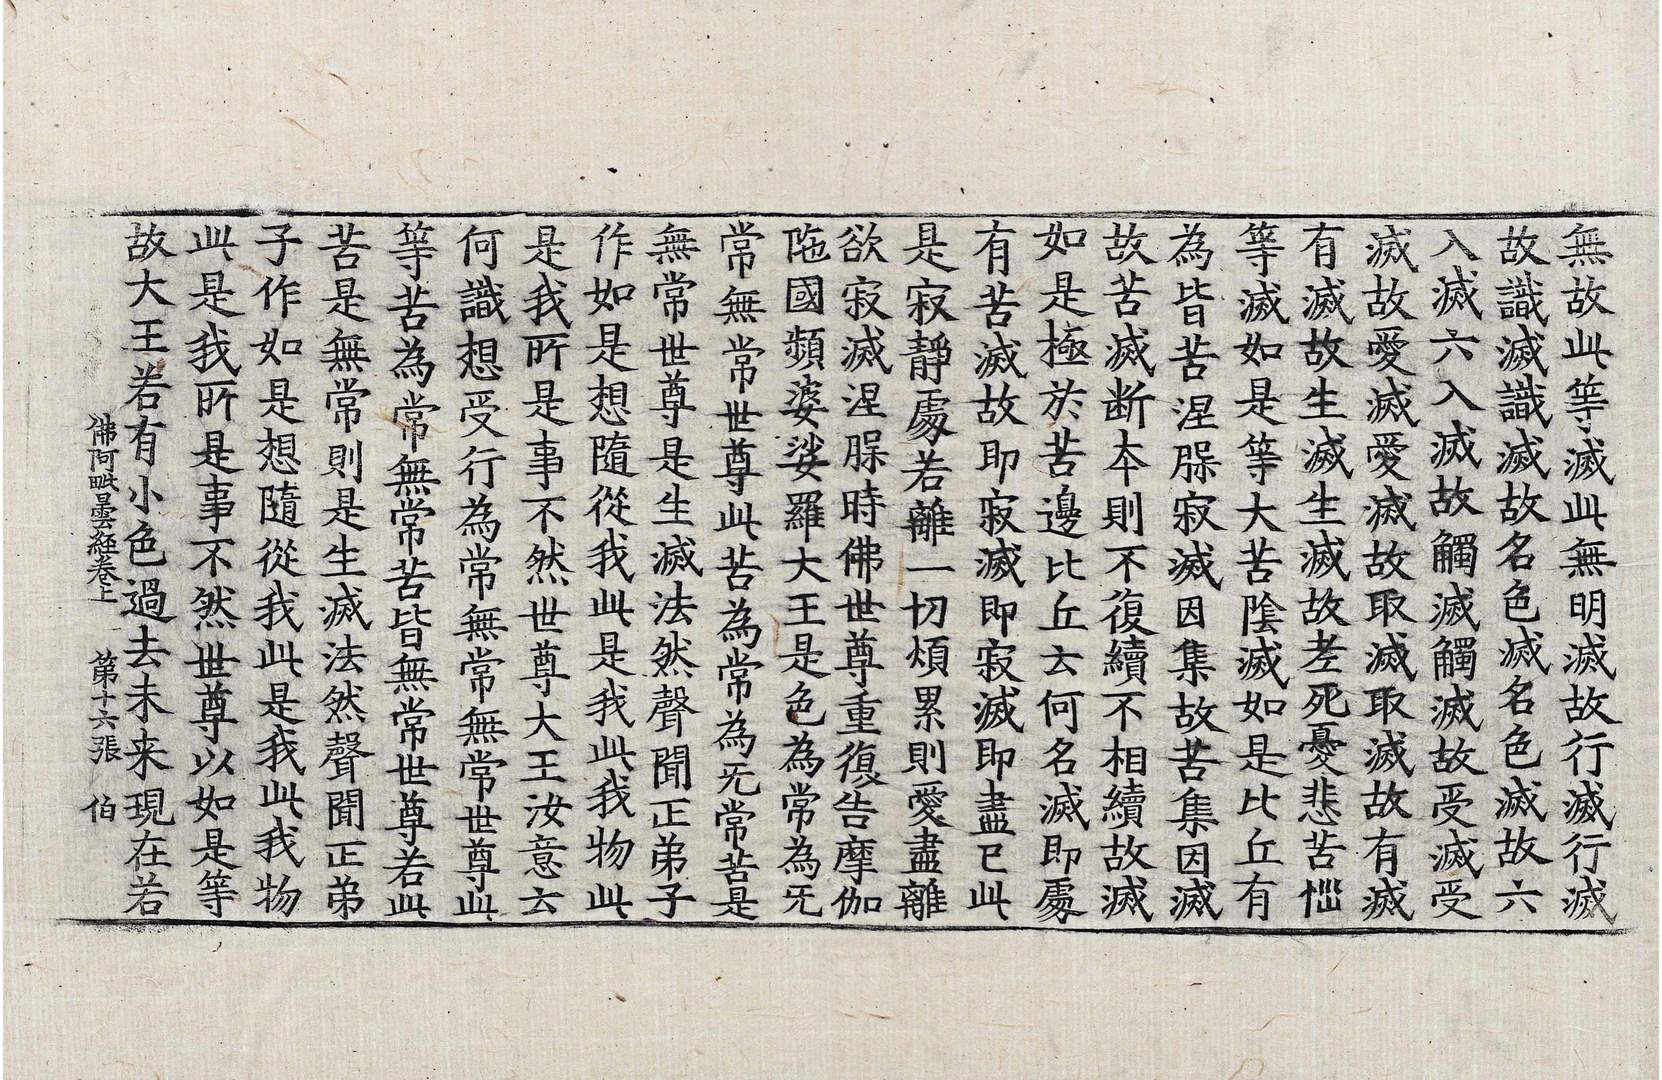 無故此等滅此無明滅故行滅行滅
故識滅識滅故名色滅名色滅故六
入滅六入滅故觸滅觸滅故受滅受
滅故愛滅愛滅故取滅取滅故有滅
有滅故生滅生滅故老死憂悲苦惱
等滅如是等大苦陰滅如是比丘有
為皆苦涅槃寂滅因集故苦集因滅
故苦滅断夲則不復續不相續故滅
如是極於苦邊比丘云何名滅即處
有苦滅故即寂滅即寂滅即盡已此
是寂靜處若離一切煩累則愛盡離
欲寂滅涅槃時佛世尊重復告摩伽
陁國頻婆娑羅大王是色為常為无
常無常世尊此苦為常為无常苦是
無常世尊是生滅法然聲聞正弟子
作如是想隨從我此是我此我物此
是我所是事不然世尊大王汝意云
何識想受行為常無常無常世尊此
等苦為常無常苦皆無常世尊若此
苦是無常則是生滅法然聲聞正弟
子作如是想隨從我此是我此我物
此是我所是事不然世尊以如是等
故大王若有小色過去未来現在若
佛阿毗曇経卷上　第十六張　伯